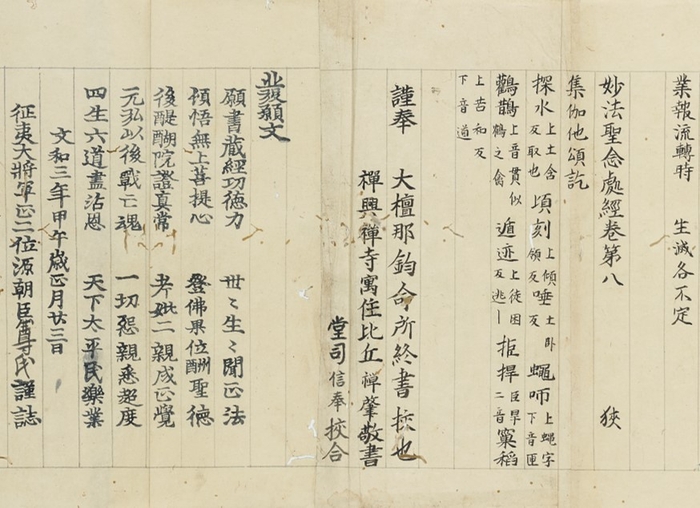 業報流轉時　生滅各不定
妙法聖念處經卷第八　狹
集伽他頌訖
探水上土含反取也　頃刻上傾領反　唾土卧反　蠅咂上蠅字下音匝
鸛鵲上音貫似鶴之禽　遁迹上徒困反逃〡　拒捍臣旱二音　窠稻
上苦和反下音道
謹奉　大檀那鈞命所終書也
禪興禪寺寓住比丘　禪肇敬書
堂司　信奉　挍合
發願文
願書藏經功德力　世〻生〻聞正法
頓悟無上菩提心　登佛果位酬聖德
後醍醐院證真常　考妣二親成正覺
元弘以後戰亡魂　一切怨親悉超度
四生六道盡沾恩　天下太平民樂業
文和三年甲午歲正月廿三日
征夷大將軍正二位源朝臣尊氏謹誌